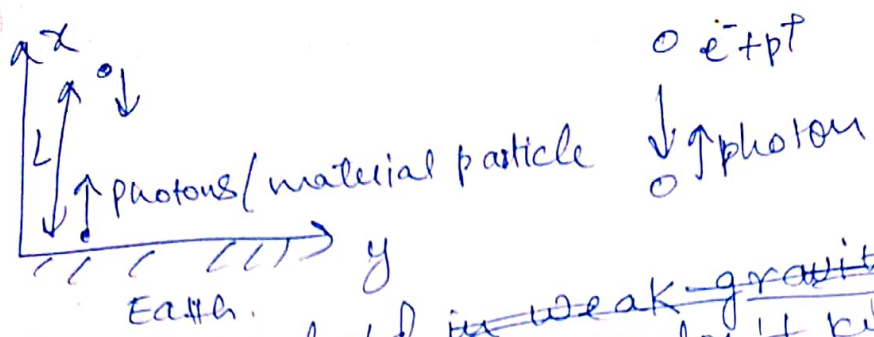 x
e⁻+p⁺
L
photons/material particle
photon
y
Earth.
in weak gravit